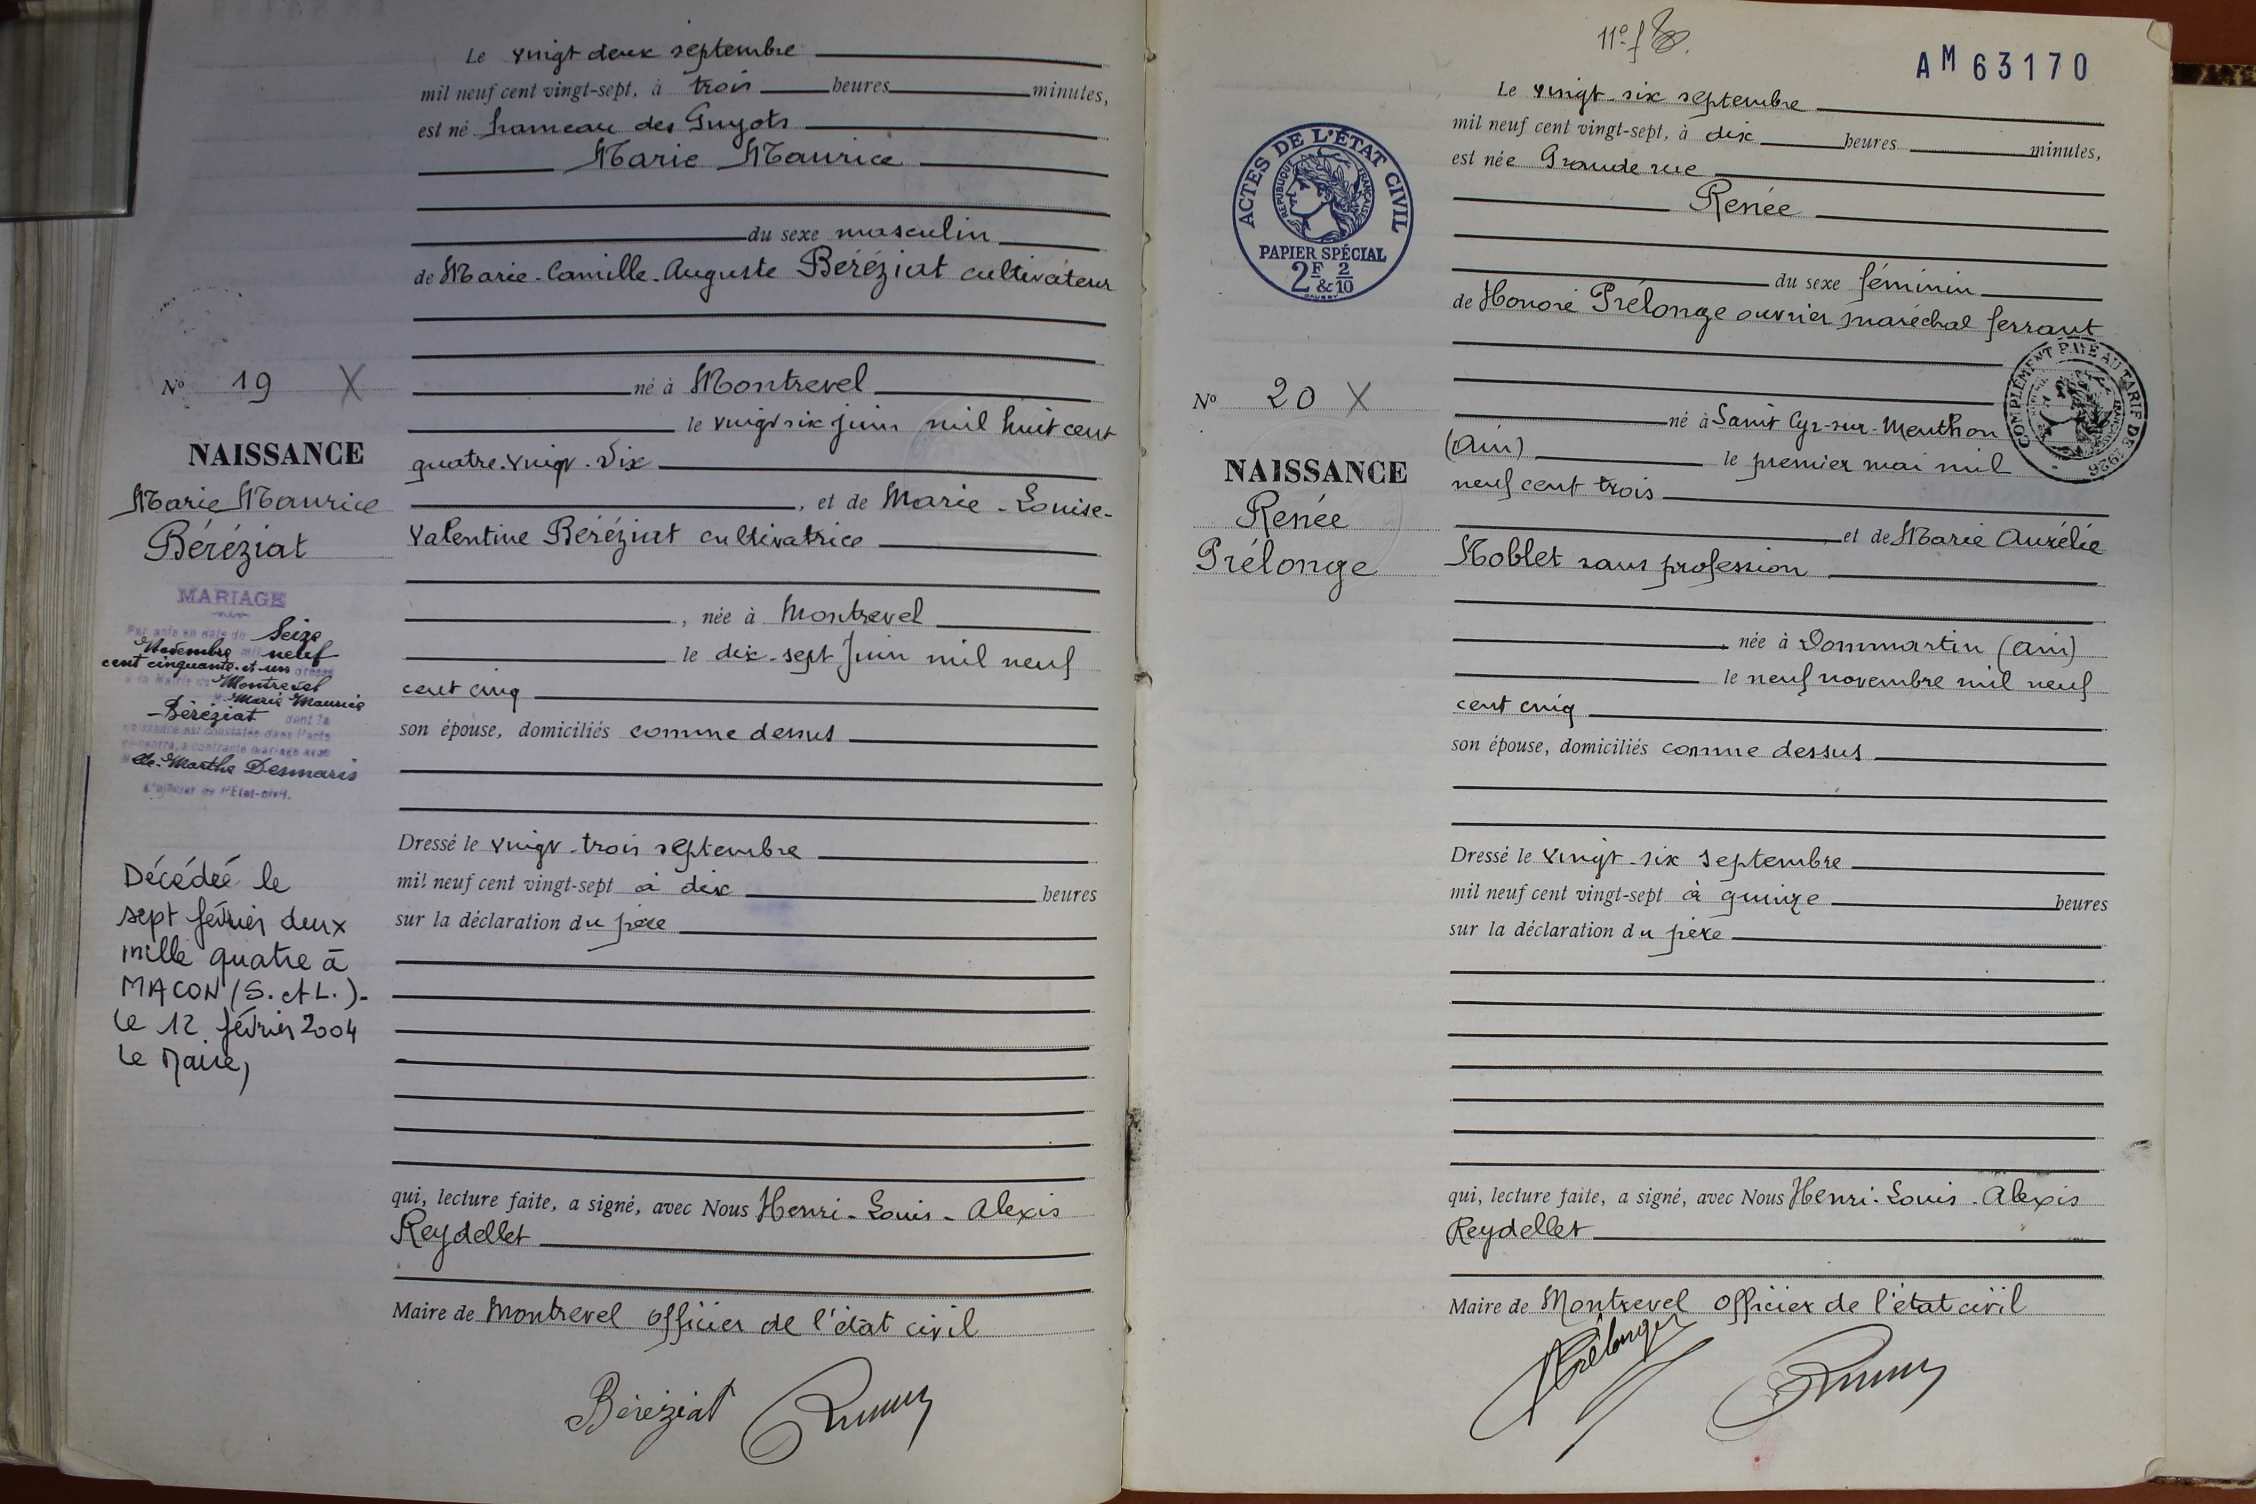 Le vingt deux septembre
mil neuf cent vingt-sept, à trois heures minutes,
est né hameau des Guyots
Marie Maurice
du sexe masculin
de Marie-Camille-Auguste Béréziat cultivateur
né à Montrevel
le vingt six juin mil huit cent
quatre-vingt-dix
, et de Marie-Louise-
Valentine Béréziat cultivatrice
, née à Montrevel
le dix-sept Juin mil neuf
cent cinq
son épouse, domiciliés comme dessus
Dressé le vingt-trois septembre
mil neuf cent vingt-sept à dix heures
sur la déclaration du père
qui, lecture faite, a signé, avec Nous Henri-Louis-Alexis
Reydellet
Maire de Montrevel officier de l'état civil
Béréziat
N° 19 X
NAISSANCE
Marie Maurice
Béréziat
MARIAGE
Par acte en date du Seize
Novembre mil neuf
cent cinquante-et-un dressé
à la Mairie de Montrevel
Marie Maurice
Béréziat dont la
naissance est constatée dans l'acte
ci-contre, a contracté mariage avec
Marthe Desmaris
L'officier de l'Etat-civil.
Décédéé le
sept février deux
mille quatre à
MACON (S. et L.).
Le 12 février 2004
Le Maire,
11e f
AM 63170
ACTES DE L'ÉTAT CIVIL
RÉPUBLIQUE FRANÇAISE
PAPIER SPÉCIAL
2F & 2/10
Le vingt-six septembre
mil neuf cent vingt-sept, à dix heures minutes,
est née Grande rue
Renée
du sexe féminin
de Honoré Prélonge ouvrier maréchal ferrant
COMPLÉMENT PAYÉ AU TARIF DE 1926
né à Saint Cyr-sur-Menthon
(Ain) le premier mai mil
neuf cent trois
, et de Marie Aurélie
Noblet sans profession
, née à Dommartin (Ain)
le neuf novembre mil neuf
cent cinq
son épouse, domiciliés comme dessus
Dressé le vingt-six septembre
mil neuf cent vingt-sept à quinze heures
sur la déclaration du père
qui, lecture faite, a signé, avec Nous Henri-Louis-Alexis
Reydellet
Maire de Montrevel officier de l'état civil
Prélonge
N° 20 X
NAISSANCE
Renée
Prélonge